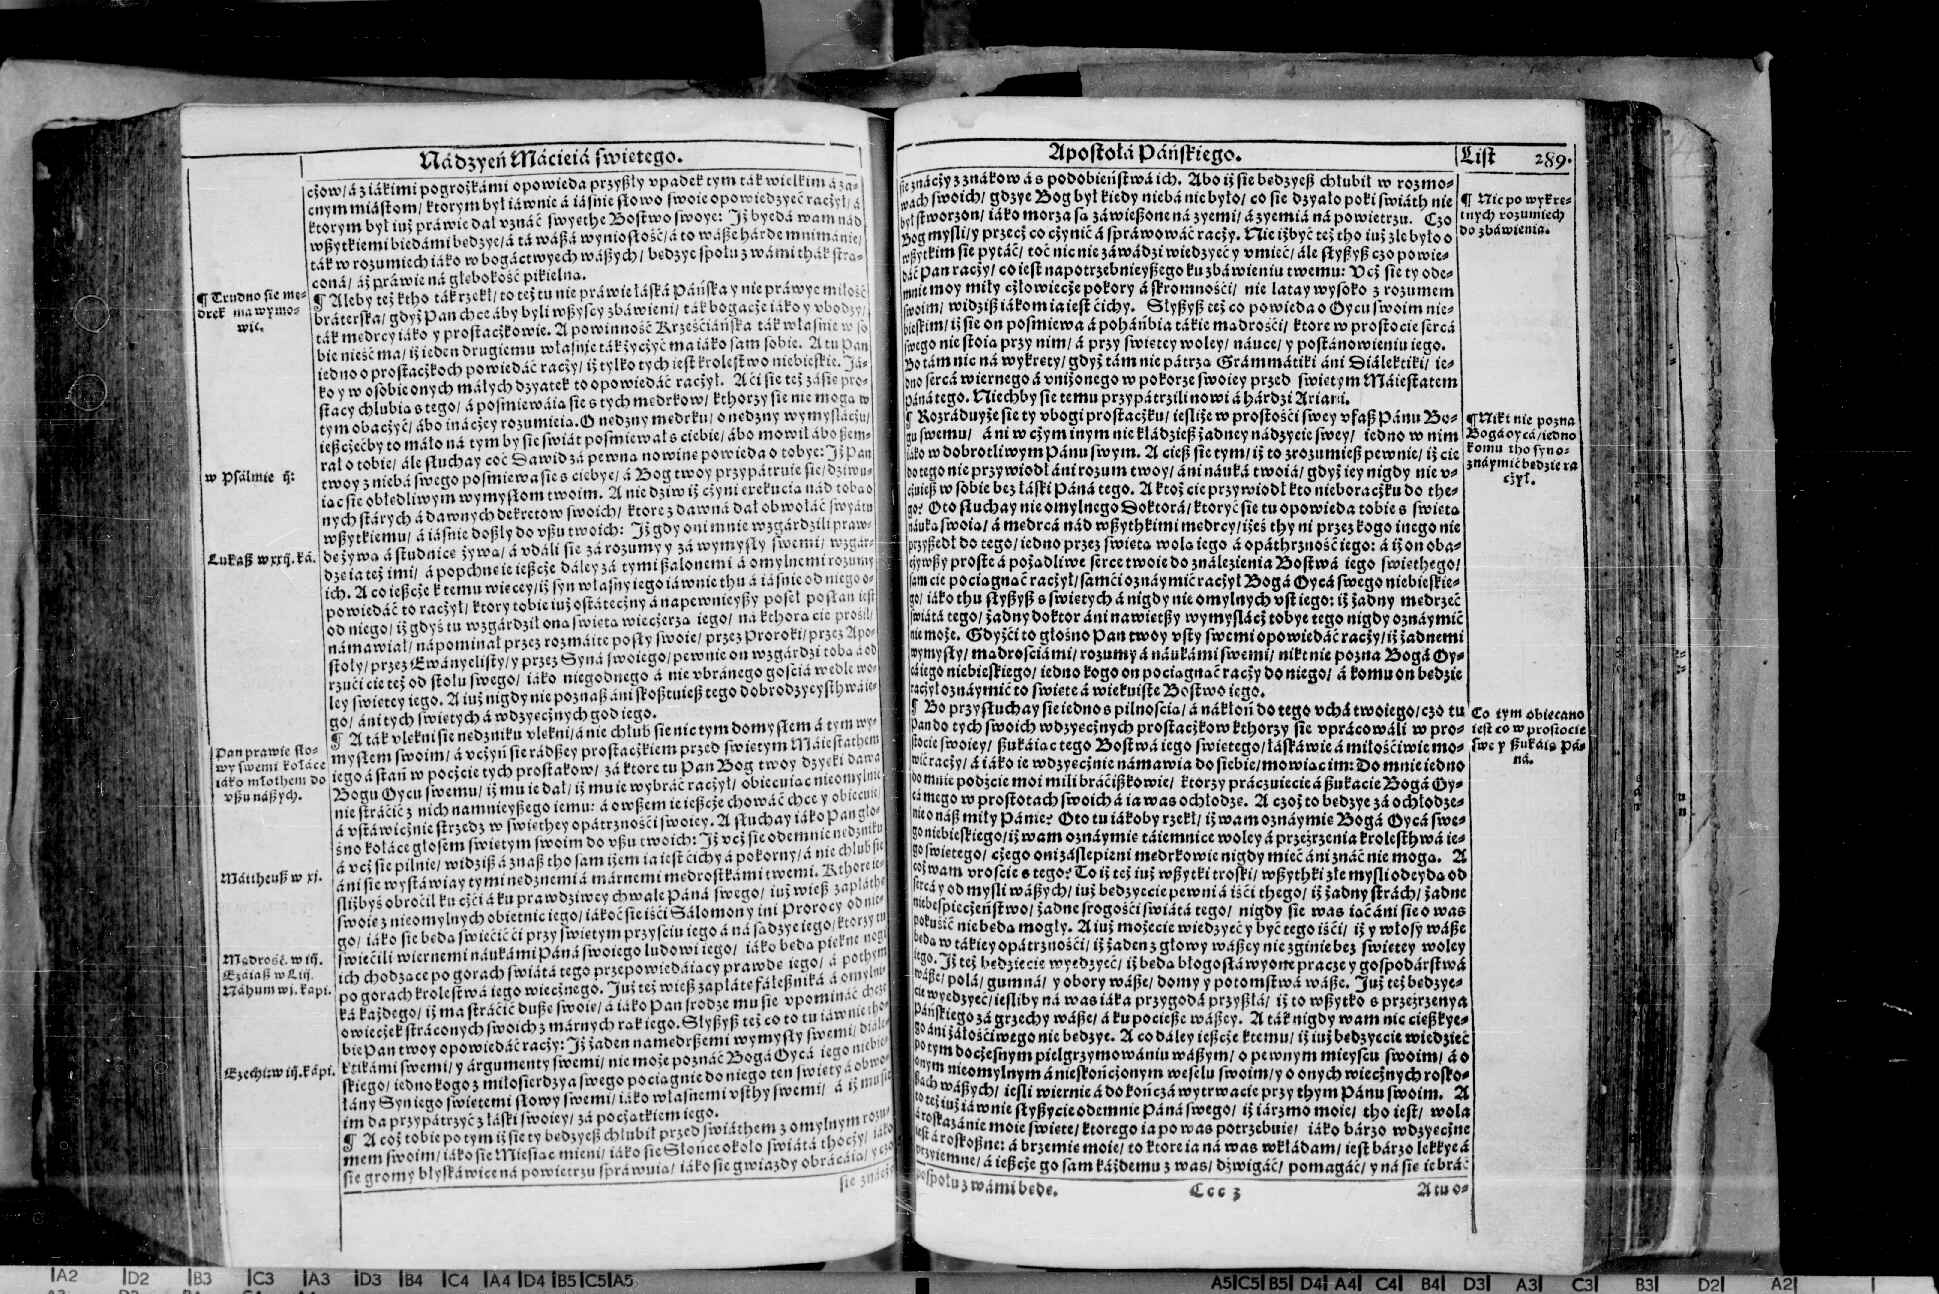 Nádzyeń Máćieiá swietego.
cżow/ á z iákimi pogrożkámi opowieda przyßły vpadek tym ták wielkim á zá-
cnym miástom/ ktorym był iáwnie á iáśnie słowo swoie opowiedzyeć racżył/ á
ktorym był iuż práwie dał vznáć swyethe Bostwo swoye: Jż byedá wam nád
wßytkiemi biedámi bedzye/ á tá wáßá wyniosłość/ á to wáße hárde mnimánie/
ták w rozumiech iáko w bogáctwyech wáßych/ bedzye społu z wámi thák strá-
coná/ áż práwie ná głebokość piekielna.
¶ Aleby też ktho ták rzekł/ to też tu nie práwie łáská Páńska y nie práwye miłość
bráterska/ gdyż Pan chce áby byli wßyscy zbáwieni/ ták bogacże iáko y vbodzy/
ták medrcy iáko y prostacżkowie. A powinność Krześćiáńska ták własnie w so
bie nieść ma/ iż ieden drugiemu własnie ták życżyć ma iáko sam sobie. A tu Pan
iedno o prostacżkoch powiedáć racży/ iż tylko tych iest krolestwo niebieskie. Já-
ko y w osobie onych máłych dzyatek to opowiedáć racżył. Aći sie też zásie pro-
stacy chlubia s tego/ á pośmiewáia sie s tych medrkow/ kthorzy sie nie moga w
tym obacżyć/ ábo inácżey rozumieia. O nedzny medrku/ o nedzny wymyslácżu/
ießcżećby to máło ná tym by sie swiát pośmiewał s ciebie/ ábo mowił ábo ßem-
rał o tobie/ ále słuchay coć Dawid zá pewna nowine powieda o tobye: Jż Pan
twoy z niebá swego pośmiewa sie s ciebye/ á Bog twoy przypátruie sie/ dziwu-
iac sie obłedliwym wymysłom twoim. A nie dziw iż cżyni exekucia nád toba o
nych stárych á dawnych dekretow swoich/ ktore z dawná dał obwołáć swyátu
wßytkiemu/ á iáśnie doßły do vßu twoich: Jż gdy oni mnie wzgárdzili praw-
de żywa á studnice żywa/ á vdáli sie zá rozumy y zá wymysły swemi/ wzgár-
dze ia też imi/ á popchne ie ießcże dáley zá tymi ßalonemi á omylnemi rozumy
ich. A co ießcże k temu wiecey/ iż syn własny iego iáwnie thu á iáśnie od niego o-
powiedáć to racżył/ ktory tobie iuż ostátecżny á napewnieyßy poseł posłan iest
od niego/ iż gdyś tu wzgárdził ona swieta wiecżerza iego/ ná kthora cie prosił/
námawiał/ nápominał przez rozmáite posły swoie/ przez Proroki/ przez Apo-
stoły/ przez Ewányelisty/ y przez Syná swoiego/ pewnie on wzgárdzi toba á od
rzuci cie też od stołu swego/ iáko niegodnego á nie vbránego gościá wedle wo-
ley swietey iego. A iuż nigdy nie poznaß áni skoßtuieß tego dobrodzyeysthwá ie-
go/ áni tych swietych á wdzyecżnych god iego.
¶ A ták vlekni sie nedzniku vlekni/ á nie chlub sie nic tym domysłem á tym wy-
mysłem swoim/ á vcżyń sie rádßey prostacżkiem przed swietym Máiestathem
iego á stań w pocżcie tych prostakow/ zá ktore tu Pan Bog twoy dzyeki dawa
Bogu Oycu swemu/ iż mu ie dał/ iż mu ie wybráć racżył/ obiecuiac nieomylnie
nie stráćić z nich namnieyßego iemu: á owßem ie ießcże chowáć chce y obiecuie/
á vstáwicżnie strzedz w swiethey opátrzności swoiey. A słuchay iáko Pan gło-
śno kołáce głosem swietym swoim do vßu twoich: Jż vcż sie odemnie nedzniku
á vcż sie pilnie/ widziß á znaß tho sam iżem ia iest cichy á pokorny/ á nie chlub sie
áni sie wystáwiay tymi nedznemi á márnemi medrostkámi twemi. Kthore ie-
śliżbyś obrocił ku cżci á ku prawdziwey chwale Páná swego/ iuż wieß zapláthe
swoie z nieomylnych obietnic iego/ iákoć sie iści Sálomon y ini Prorocy od nie-
go/ iáko sie beda swiećićci przy swietym przysciu iego á ná sadzye iego/ ktorzy tu
swiećili wiernemi náukámi Páná swoiego ludowi iego/ iáko beda piekne nogi
ich chodzace po gorach swiátá tego przepowiedáiacy prawde iego/ á pothym
po gorach krolestwá iego wiecżnego. Już też wieß zapláte fáleßniká á omylni-
ká káżdego/ iż ma stráćić duße swoie/ á iáko Pan srodze mu sie vpomináć chce
owiecżek stráconych swoich z márnych rak iego. Słyßyß też co to tu iáwnie tho-
bie Pan twoy opowiedáć racży: Jż żaden namedrßemi wymysły swemi/ diále-
ktikámi swemi/ y árgumenty swemi/ nie może poznáć Bogá Oycá iego niebie-
skiego/ iedno kogo z miłosierdzya swego pociagnie do niego ten swiety á obwo-
łány Syn iego swietemi słowy swemi/ iáko własnemi vsthy swemi/ á iż mu sie
im da przypátrzyć z łáski swoiey/ zá pocżatkiem iego.
¶ A coż tobie po tym iż sie ty bedzyeß chlubił przed swiáthem z omylnym rozu-
mem swoim/ iáko sie Miesiac mieni/ iáko sie Słońce około swiátá thocży/ iáko
sie gromy błyskáwice ná powietrzu spráwuia/ iáko sie gwiazdy obracáia/ y czo
sie znácży
¶ Trudno sie me-
drek ma wymo-
wić.
w Psálmie ij:
Lukaß w xxij. ká.
Pan prawie sło-
wy swemi kołáce
iáko młothem do
vßu náßych.
Máttheuß w xj.
Mądrość. w iij.
Ezáiaß w Lij.
Náhum w j. kápi.
Ezechi: w iij. kápi.
Apostołá Páńskiego.
List 289.
sie znácży z znákow á s podobieństwá ich. Abo iż sie bedzyeß chlubił w rozmo-
wach swoich/ gdzye Bog był kiedy niebá nie było/ co sie dzyało poki swiáth nie
był stworzon/ iáko morza sa záwießone ná zyemi/ á zyemiá ná powietrzu. Czo
Bog mysli/ y przecż co cżynić á spráwowáć racży. Nie iżbyć też tho iuż złe było o
wßytkim sie pytáć/ toć nic nie záwádzi wiedzyeć y vmieć/ ále słyßyß czo powie-
dáć Pan racży/ co iest napotrzebnieyßego ku zbáwieniu twemu: Vcż sie ty ode-
mnie moy miły cżłowiecże pokory á skromności/ nie latay wysoko z rozumem
swoim/ widziß iákom ia iest ćichy. Słyßyß też co powieda o Oycu swoim nie-
bieskim/ iż sie on pośmiewa á poháńbia tákie madrości/ ktore w prostocie sercá
swego nie stoia przy nim/ á przy swietey woley/ náuce/ y postánowieniu iego.
Bo tám nic ná wykrety/ gdyż tám nie pátrza Grámmátiki áni Diálektiki/ ie-
dno sercá wiernego á vniżonego w pokorze swoiey przed swietym Máiestatem
Páná tego. Niechby sie temu przypátrzili nowi á hárdzi Ariani.
¶ Rozráduyże sie ty vbogi prostacżku/ iesliże w prostości swey vfaß Pánu Bo-
gu swemu/ á ni w cżym inym nie kłádzieß żadney nádzyeie swey/ iedno w nim
iáko w dobrotliwym Pánu swym. A cieß sie tym/ iż to zrozumieß pewnie/ iż cie
do tego nie przywiodł áni rozum twoy/ áni náuká twoiá/ gdyż iey nigdy nie v-
cżuieß w sobie bez łáski Páná tego. A ktoż cie przywiodł kto nieboracżku do the-
go? Oto słuchay nie omylnego Doktorá/ ktoryć sie tu opowieda tobie s swieta
náuka swoia/ á medrcá nád wßythkimi medrcy/ iżeś thy ni przez kogo inego nie
przyßedł do tego/ iedno przez swieta wola iego á opáthrzność iego: á iż on oba-
cżywßy proste á pożadliwe serce twoie do ználezienia Bostwá iego swiethego/
sam cie pociagnáć racżył/ samći oznáymić racżył Bogá Oycá swego niebieskie-
go/ iáko thu słyßyß s swietych á nigdy nie omylnych vst iego: iż żadny medrzec
swiátá tego/ żadny doktor áni nawietßy wymyslácż tobye tego nigdy oznáymić
nie może. Gdyżći to głośno Pan twoy vsty swemi opowiedáć racży/ iż żadnemi
wymysły/ madrościámi/ rozumy á náukámi swemi/ nikt nie pozna Bogá Oy-
cá iego niebieskiego/ iedno kogo on pociagnáć racży do niego/ á komu on bedzie
racżył oznáymić to swiete á wiekuiste Bostwo iego.
¶ Bo przysłuchay sie iedno s pilnoscia/ á nákłoń do tego vchá twoiego/ czo tu
Pan do tych swoich wdzyecżnych prostacżkow kthorzy sie vprácowáli w pro-
stocie swoiey/ ßukáiac tego Bostwá iego swietego/ łáskáwie á miłościwie mo-
wić racży/ á iáko ie wdzyecżnie námawia do siebie/ mowiac im: Do mnie iedno
do mnie podżcie moi mili bráćißkowie/ ktorzy prácżuiecie á ßukacie Bogá Oy-
cá mego w prostotach swoich á ia was ochłodze. A czoż to bedzye zá ochłodze-
nie o náß miły Pánie? Oto tu iákoby rzekł/ iż wam oznáymie Bogá Oycá swe-
go niebieskiego/ iż wam oznáymie táiemnice woley á przeżrzenia krolesthwá ie-
go swietego/ cżego oni záslepieni medrkowie nigdy mieć áni znáć nie moga. A
coż wam vroscie s tego? To iż też iuż wßytki troski/ wßythki złe mysli odeyda od
sercá y od mysli wáßych/ iuż bedzyecie pewni á iści thego/ iż żadny strách/ żadne
niebespiecżeństwo/ żadne srogości swiátá tego/ nigdy sie was iáć áni sie o was
pokusić nie beda mogły. A iuż możecie wiedzyeć y być tego iści/ iż y włosy wáße
beda w tákiey opátrzności/ iż żaden z głowy wáßey nie zginie bez swietey woley
iego. Jż też bedziecie wyedzyeć/ iż beda błogosłáwyone pracze y gospodárstwá
wáße/ polá/ gumná/ y obory wáße/ domy y potomstwá wáße. Już też bedzye-
cie wyedzyeć/ iesliby ná was iáka przygodá przyßłá/ iż to wßytko s przeżrzenya
Páńskiego zá grzechy wáße/ á ku pocieße wáßey. A ták nigdy wam nic cießkye-
go áni żáłościwego nie bedzye. A co dáley ießcże k temu/ iż iuż bedzyecie wiedzieć
po tym docżesnym pielgrzymowániu wáßym/ o pewnym mieyscu swoim/ á o
onym nieomylnym á nieskończonym weselu swoim/ y o onych wiecżnych rosko-
ßach wáßych/ iesli wiernie á do końcżá wytrwacie przy thym Pánu swoim. A
to też iuż iáwnie słyßycie odemnie Páná swego/ iż iárzmo moie/ tho iest/ wola
á roskazánie moie swiete/ ktorego ia po was potrzebuie/ iáko bárzo wdzyecżne
iest á roskoßne: á brzemie moie/ to ktore ia ná was wkłádam/ iest bárzo lekkye á
przyiemne/ á ießcże go sam káżdemu z was/ dźwigáć/ pomagáć/ y ná sie ie bráć
pospołu z wámi bede.
Ccc 3
A tu o-
¶ Nic po wykre-
tnych rozumiech
do zbáwienia.
¶ Nikt nie pozna
Bogá oycá/ iedno
komu tho syn o-
znáymić bedzie rá
cżył.
Co tym obiecano
iest co w prostocie
swey ßukáią Pá-
ná.
A2 D2 B3 C3 A3 D3 B4 C4 A4 D4 B5 C5 A5
A5 C5 B5 D4 A4 C4 B4 D3 A3 C3 B3 D2 A2